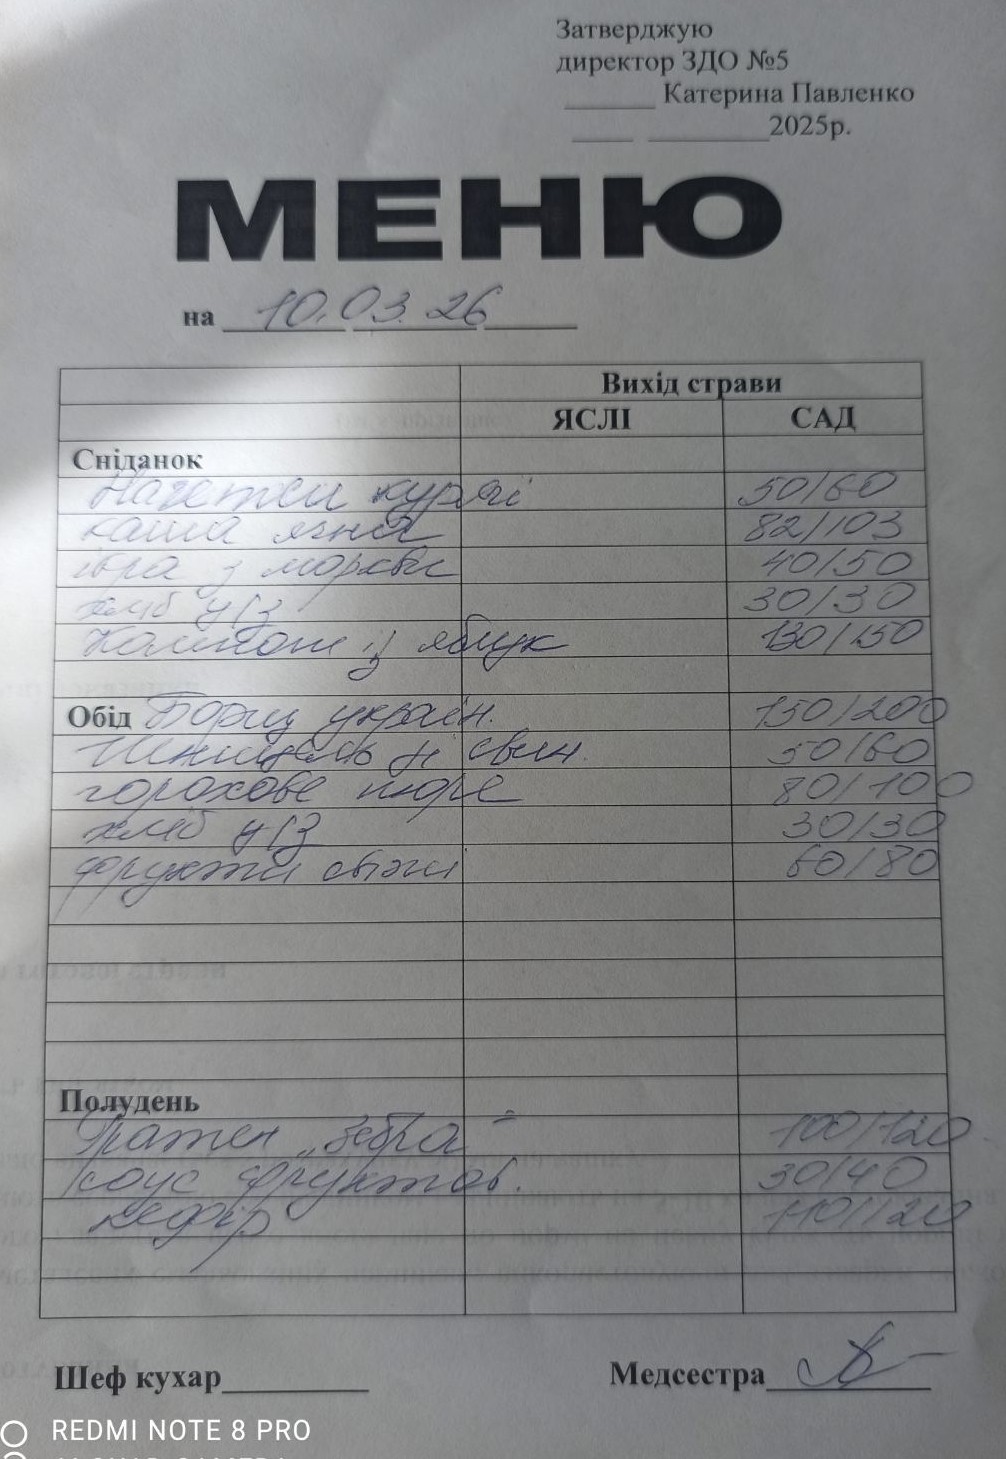 Затверджую
директор ЗДО №5
______ Катерина Павленко
____ ________2025р.
МЕНЮ
на 10.03.26
Вихід страви
ЯСЛІ САД
Сніданок
Нагетси курячі 50/60
каша ячна 82/103
ікра з моркви 40/50
хліб ц/з 30/30
Компот із яблук 130/150
Обід Борщ україн. 150/200
Шніцель н свин. 50/60
горохове пюре 80/100
хліб ц/з 30/30
фрукти свіжі 60/80
Полудень
"Зебра" 100/120
соус фруктов. 30/40
кефір 110/120
Шеф кухар________ Медсестра
REDMI NOTE 8 PRO